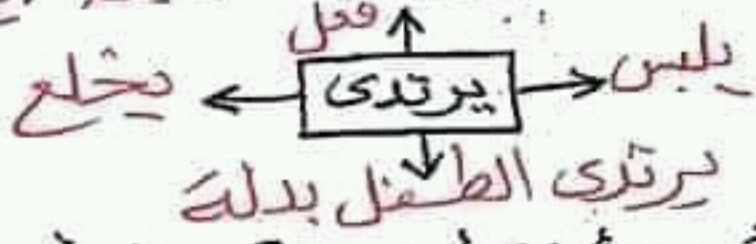 فعل
يلبس
يرتدى
يخلع
يرتدى الطفل بدلة